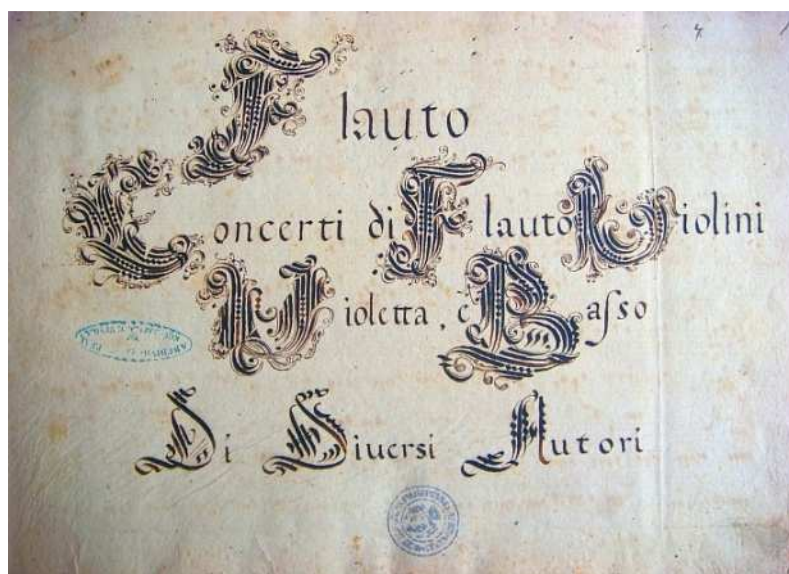 Flauto
Concerti di Flauto Violini
Violetta, è Baſso
Di Diversi Autori